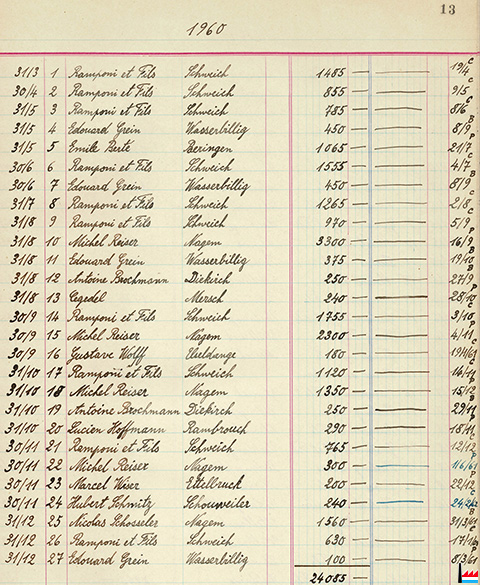 13
1960
31/3 1 Ramponi et Fils Schweich 1485 — 19/4 C
30/4 2 Ramponi et Fils Schweich 855 — 9/5 C
31/5 3 Ramponi et Fils Schweich 785 — 8/6 C
31/5 4 Edouard Grein Wasserbillig 450 — 8/9 B
31/5 5 Emile Berté Beringen 1065 — 21/7 P
30/6 6 Ramponi et Fils Schweich 1555 — 4/7 C
30/6 7 Edouard Grein Wasserbillig 450 — 8/9 B
31/7 8 Ramponi et Fils Schweich 1265 — 2/8 C
31/8 9 Ramponi et Fils Schweich 970 — 5/9 C
31/8 10 Michel Reiser Nagem 3300 — 16/9 P
31/8 11 Edouard Grein Wasserbillig 375 — 19/10 B
31/8 12 Antoine Brochmann Diekirch 250 — 27/9 B
31/8 13 Cegedel Mersch 240 — 25/10 P
30/9 14 Ramponi et Fils Schweich 1755 — 3/10 C
30/9 15 Michel Reiser Nagem 2300 — 4/11 P
30/9 16 Gustave Wolff 180 — 19/4/61 C
31/10 17 Ramponi et Fils Schweich 1120 — 14/11 C
31/10 18 Michel Reiser Nagem 1350 — 15/12 P
31/10 19 Antoine Brochmann Diekirch 250 — 29/11 B
31/10 20 Lucien Hoffmann Rambrouch 290 — 18/11 P
30/11 21 Ramponi et Fils Schweich 765 — 12/12 C
30/11 22 Michel Reiser Nagem 300 — 1/6/61 P
30/11 23 Marcel Wiser Ettelbruck 200 — 22/12 P
30/11 24 Hubert Schmitz Schouweiler 240 — 24/2/62 C
31/12 25 Nicolas Schosseler Nagem 1560 — 31/3/61 B
31/12 26 Ramponi et Fils Schweich 630 — 17/1/61 C
31/12 27 Edouard Grein Wasserbillig 100 — 8/3/61 P
24085 —